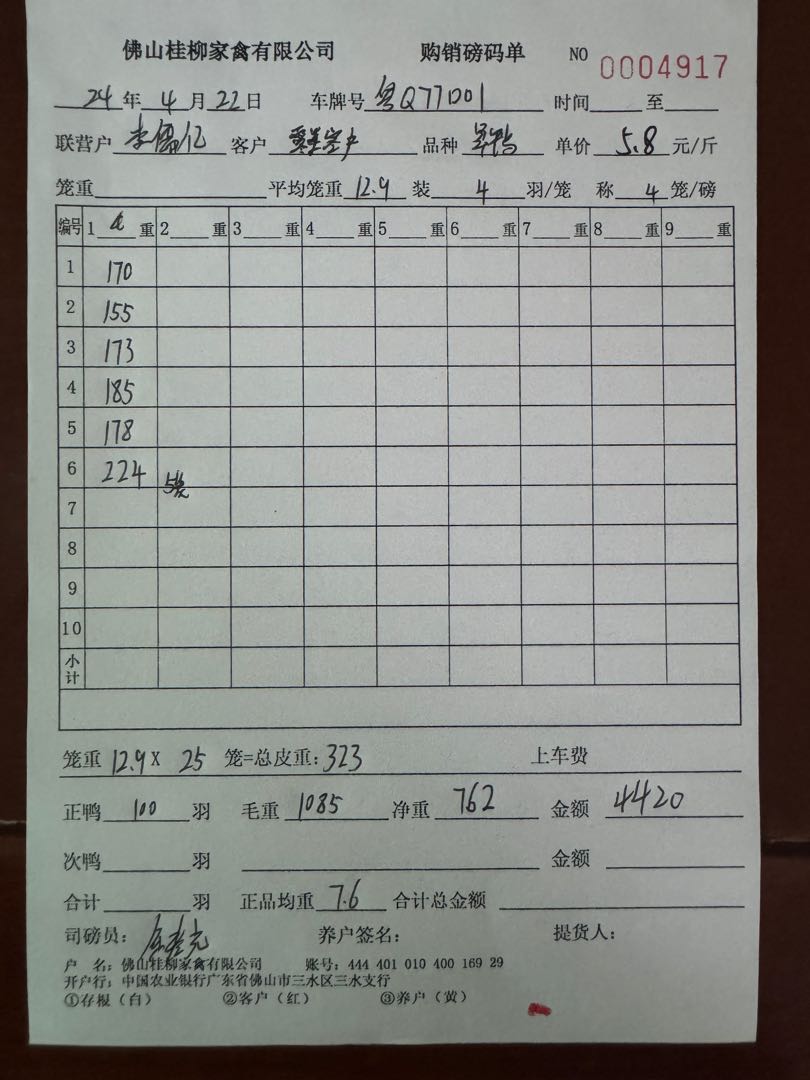 佛山桂柳家禽有限公司 购销磅码单 NO 0004917
24年4月22日 车牌号 粤Q77D01 时间 至
联营户 李 亿 客户 品种 鸭 单价 5.8 元/斤
笼重 平均笼重 12.9 装 4 羽/笼 称 4 笼/磅
编号 1 重 2 重 3 重 4 重 5 重 6 重 7 重 8 重 9 重
1 170
2 155
3 173
4 185
5 178
6 224 5笼
7
8
9
10
小计
笼重 12.9 X 25 笼=总皮重: 323 上车费
正鸭 100 羽 毛重 1085 净重 762 金额 4420
次鸭 羽 金额
合计 羽 正品均重 7.6 合计总金额
司磅员: 养户签名: 提货人:
户 名: 佛山桂柳家禽有限公司 账号: 444 401 010 400 169 29
开户行: 中国农业银行广东省佛山市三水区三水支行
①存根(白) ②客户(红) ③养户(黄)